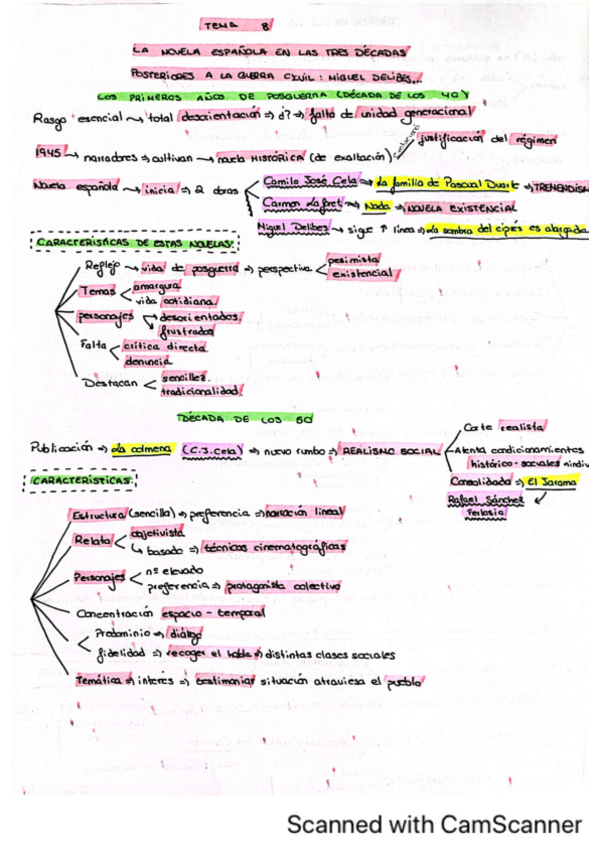 TEMA 8
LA NOVELA ESPAÑOLA EN LAS TRES DÉCADAS
POSTERIORES A LA GUERRA CIVIL: MIGUEL DELIBES,..
LOS PRIMEROS AÑOS DE POSGUERRA (DÉCADA DE LOS 40)
Rasgo esencial → total desorientación ⇒ d? ⇒ falta de unidad generacional
justificación del régimen
1945 → narradores ⇒ cultivan → novela HISTÓRICA (de exaltación)
Novela española → inicia ⇒ 2 obras
Camilo José Cela → La familia de Pascual Duarte ⇒ TREMENDISM
Carmen Laforet → Nada → NOVELA EXISTENCIAL
Miguel Delibes → sigue ↑ línea ⇒ La sombra del ciprés es alargada
CARACTERÍSTICAS DE ESTAS NOVELAS:
Reflejo → vida de posguerra ⇒ perspectiva < pesimista
existencial
Temas < amargura
vida cotidiana
personajes → desorientados
frustrados
Falta < crítica directa
denuncia
Destacan < sencillez
tradicionalidad
DÉCADA DE LOS 50
Publicación ⇒ La colmena (C.J.Cela) ⇒ nuevo rumbo ⇒ REALISMO SOCIAL
Corte realista
Atenta condicionamientos
histórico-sociales
Consolidada ⇒ El Jarama
Rafael Sánchez
Ferlosio
CARACTERÍSTICAS:
Estructura (sencilla) ⇒ preferencia ⇒ narración lineal
Relato < objetivista
basado ⇒ técnicas cinematográficas
Personajes < nº elevado
preferencia ⇒ protagonista colectivo
Concentración espacio - temporal
Predominio ⇒ diálogo
fidelidad ⇒ recoger el habla ⇒ distintas clases sociales
Temática ⇒ interés ⇒ testimoniar situación atraviesa el pueblo
Scanned with CamScanner